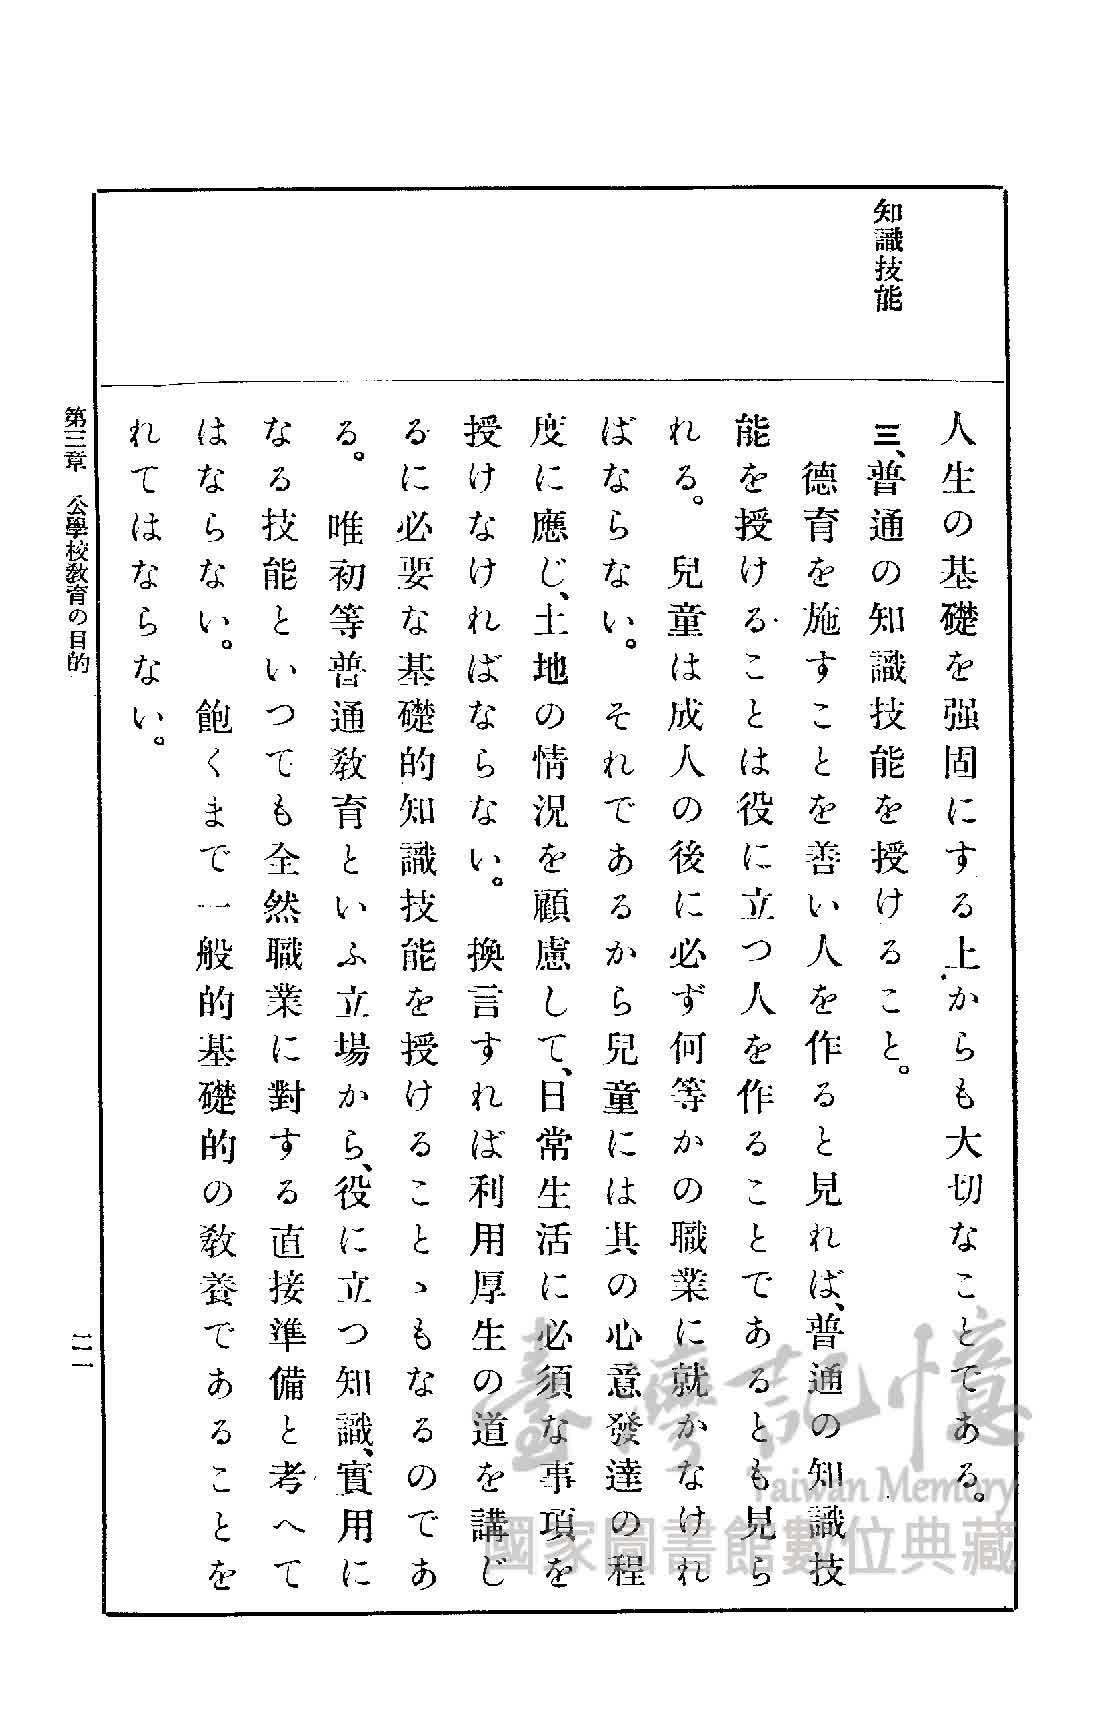 知識技能
人生の基礎を强固にする上からも大切なことである。
三、普通の知識技能を授けること。
德育を施すことを善い人を作ると見れば、普通の知識技
能を授けることは役に立つ人を作ることであるとも見ら
れる。兒童は成人の後に必ず何等かの職業に就かなけれ
ばならない。それであるから兒童には其の心意發達の程
度に應じ、土地の情況を顧慮して、日常生活に必須な事項を
授けなければならない。換言すれば利用厚生の道を講じ
るに必要な基礎的知識技能を授けることゝもなるのであ
る。唯初等普通敎育といふ立場から、役に立つ知識、實用に
なる技能といつても全然職業に對する直接準備と考へて
はならない。飽くまで一般的基礎的の敎養であることを
れてはならない。
第三章 公學校敎育の目的
二一
臺灣記憶
Taiwan Memory
國家圖書館數位典藏